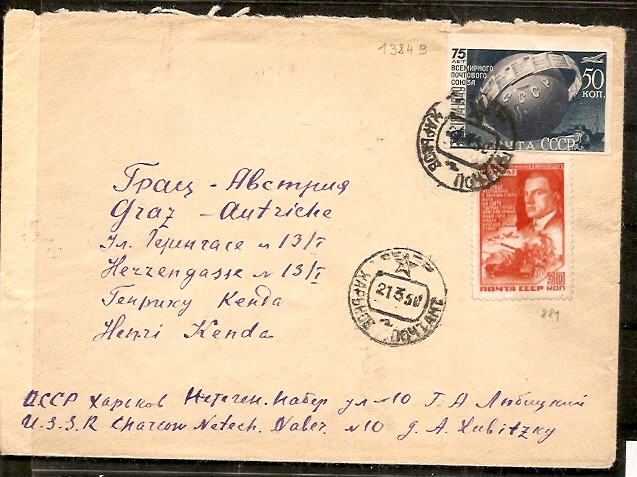 1384 В
75
ЛЕТ
ВСЕМИРНОГО
ПОЧТОВОГО
СОЮЗА
50
КОП.
СССР
ПОЧТА СССР
ХАРЬКОВ
30
ПОЧТА СССР КОП
881
Грац - Австрия
Graz - Autriche
Ул. Герингасе № 13/I
Herrengasse № 13/I
Генриху Кенда
Henri Kenda
ХАРЬКОВ
21 3 50
СССР Харьков наб ул №10 Г. А Любицкий
U.S.S.R Charcow Netech. Naber. №10 G. A. Lubitzky